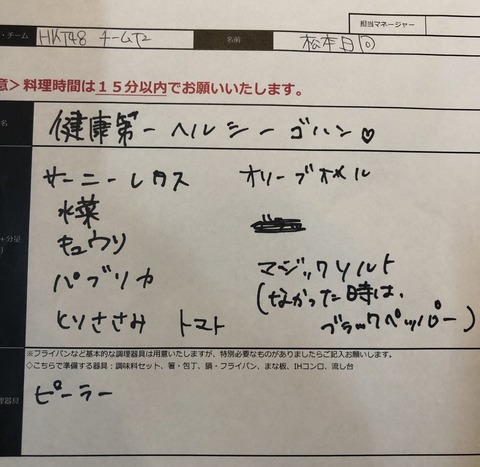 担当マネージャー
・チーム HKT48 チームTⅡ 名前 松本日向
意＞料理時間は１５分以内でお願いいたします。
名 健康第一ヘルシーゴハン♡
サーニーレタス オリーブオイル
水菜
+分量
キュウリ
パプリカ マジックソルト
(なかった時は、
とりささみ トマト ブラックペッパー)
※フライパンなど基本的な調理器具は用意いたしますが、特別必要なものがありましたらご記入お願いします。
◇こちらで準備する器具：調味料セット、箸・包丁、鍋・フライパン、まな板、IHコンロ、流し台
理器具 ピーラー